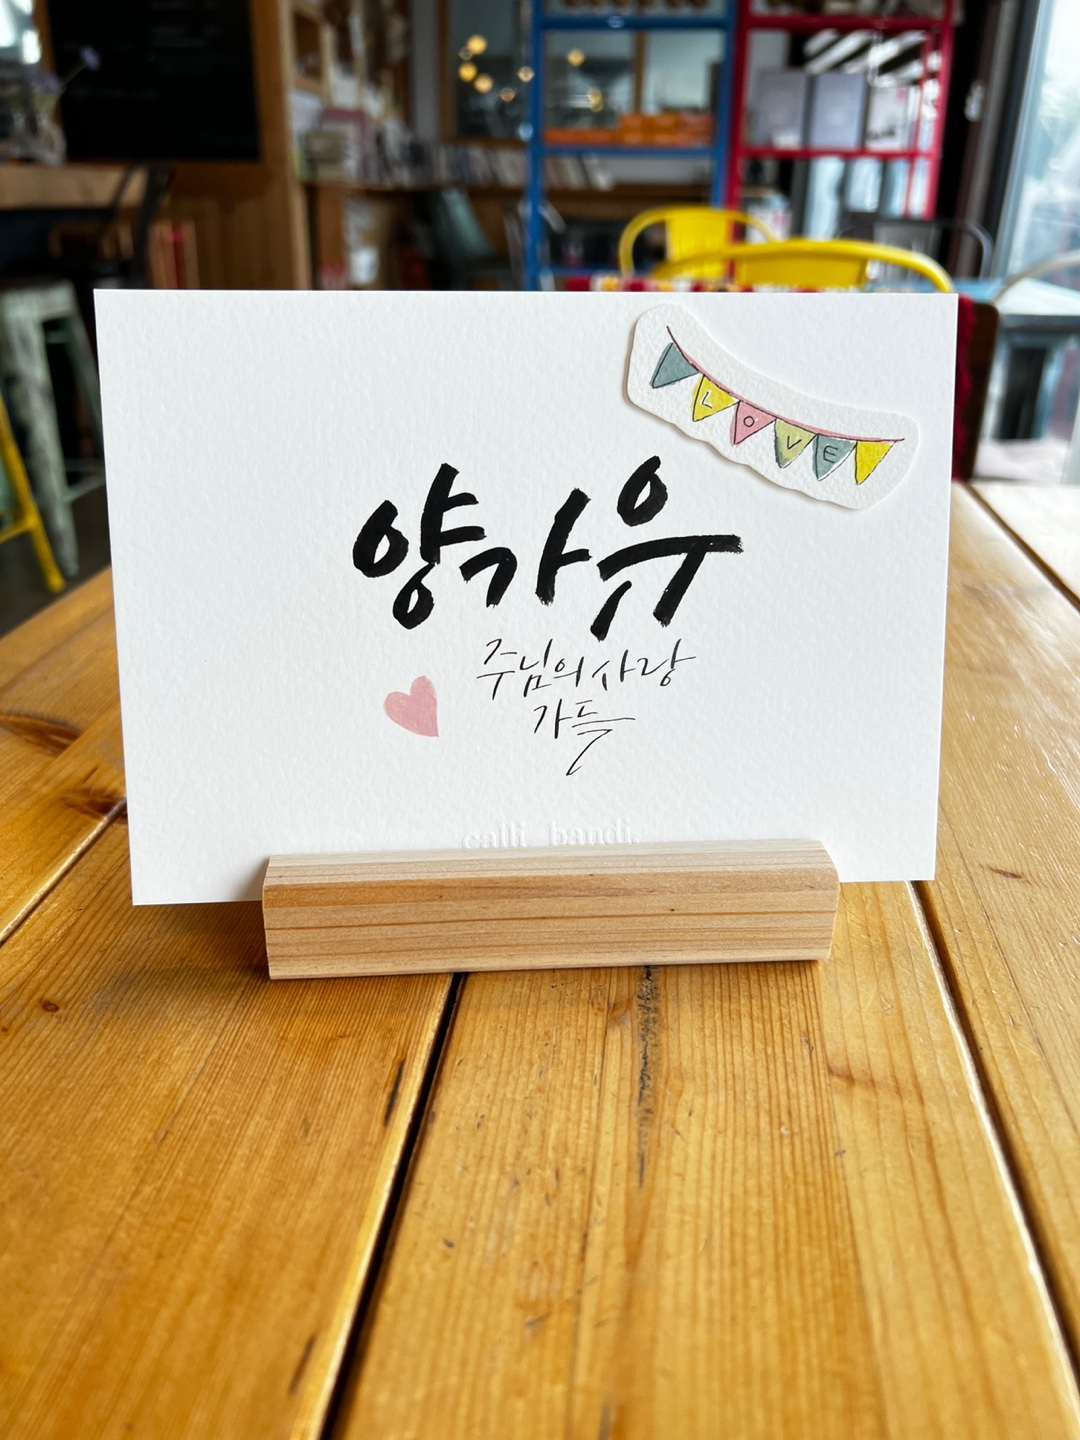 LOVE
양가유
주님의사랑
가득
calli_bandi.